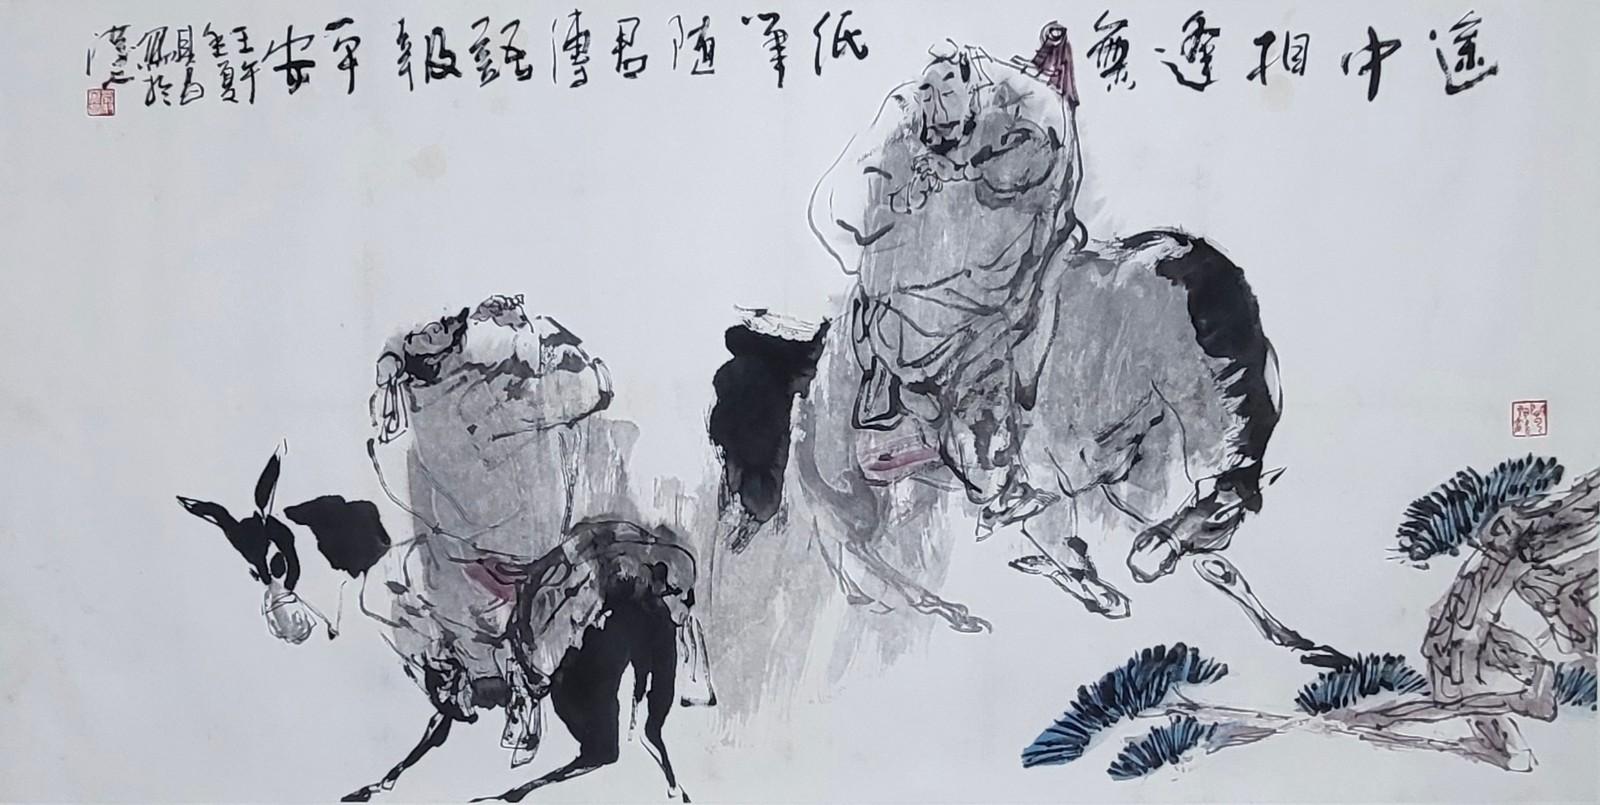 途中相逢無紙筆隨君傳語報平安
壬午
夏
於
漢上